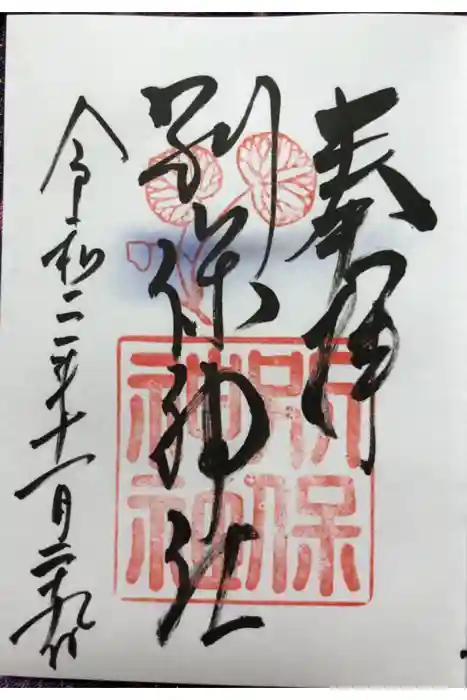 奉拝
別保神社
別保
神社
令和二年十一月二十九日